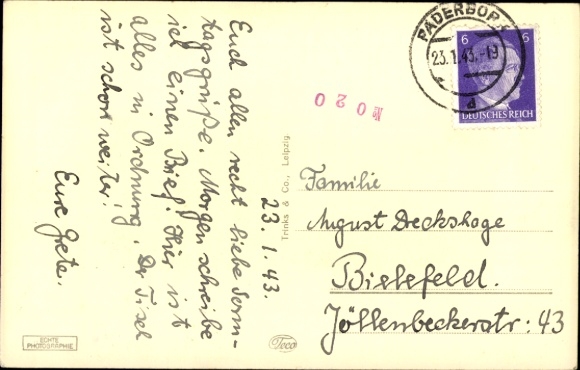 23. 1. 43.
Euch allen recht liebe Sonn-
tagsgrüße. Morgen schreibe
ich einen Brief. Hier ist
alles in Ordnung. Der Fisel
ist schon weiter!
Eure Grete.
Trinks & Co., Leipzig
№ 020
PADERBORN
23.1.43.-19
d
6 6
DEUTSCHES REICH
Familie
August Deckshoge
Bielefeld.
Jöllenbeckerstr: 43
ECHTE
PHOTOGRAPHIE
Trico